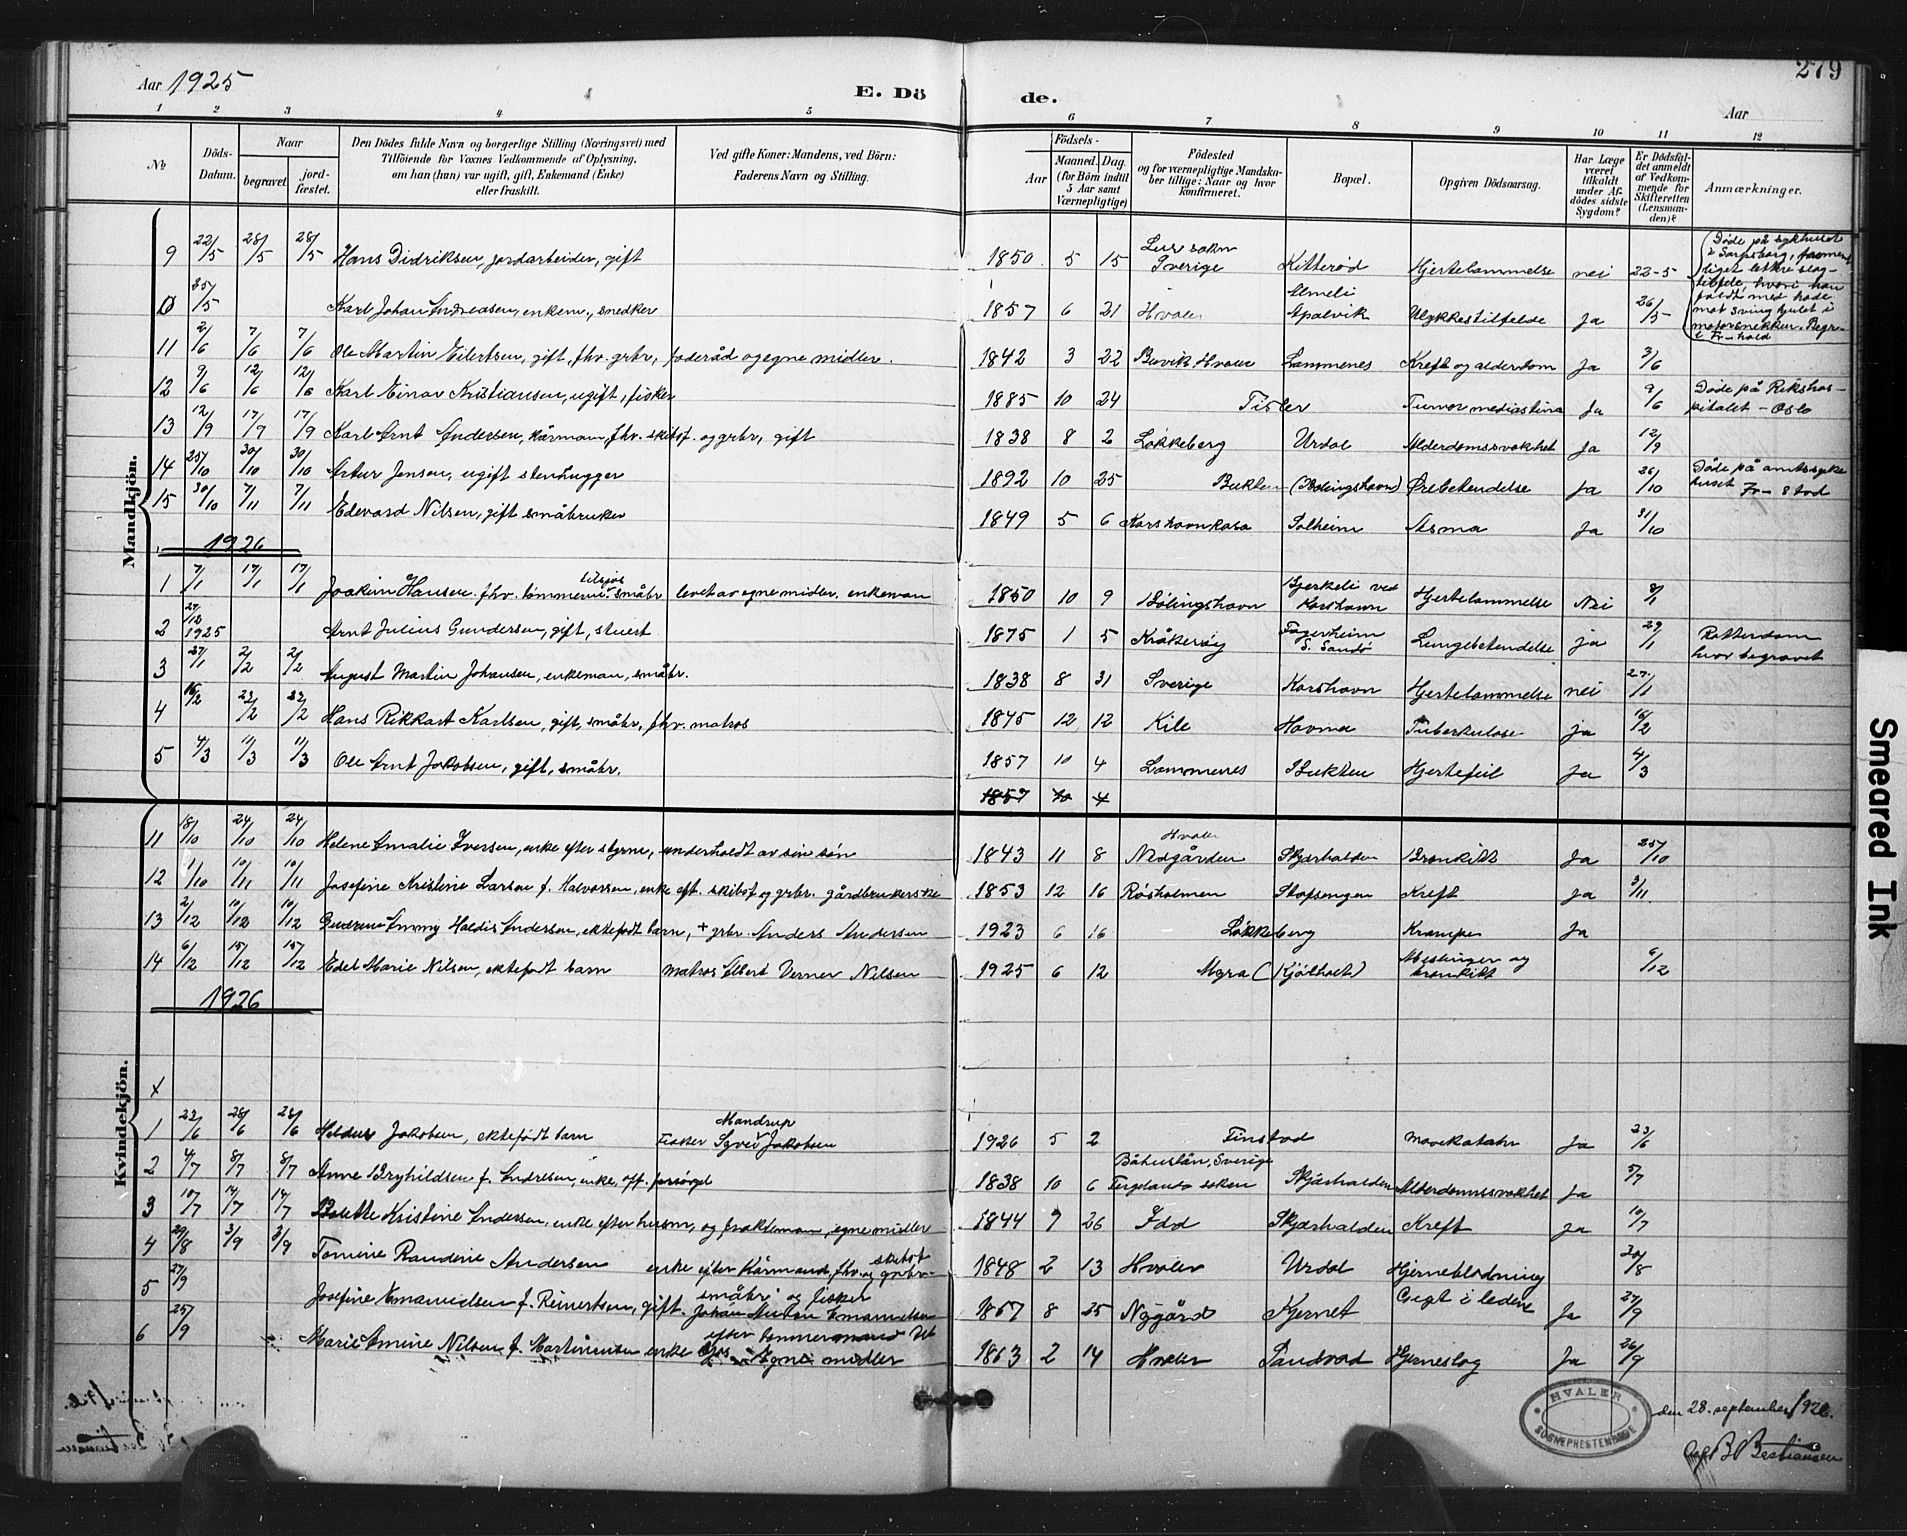 Aar 1925
E. Dö de.
279
Aar
1 2 3 4 5 6 7 8 9 10 11 12
No
Döds-Datum.
Naar
begravet
jord-fæstet.
Den Dödes fulde Navn og borgerlige Stilling (Næringsvei) med
Tilföiende for Voxnes Vedkommende af Oplysning,
om han (hun) var ugift, gift, Enkemand (Enke)
eller fraskilt.
Ved gifte Koner: Mandens, ved Börn:
Faderens Navn og Stilling.
Födsels-
Aar
Maaned. Dag.
(for Börn indtil
5 Aar samt
Værnepligtige)
Födested
og for værnepligtige Mandska-
ber tillige: Naar og hvor
konfirmeret.
Bopæl.
Opgiven Dödsaarsag.
Har Læge
været
tilkaldt
under Af-
dödes sidste
Sygdom?
Er Dödsfal-
det anmeldt
af Vedkom-
mende for
Skifteretten
(Lensman-
den)?
Anmærkninger.
Mandkjön.
9 22/5 28/5 28/5 Hans Didriksen, jordarbeider, gift 1850 5 15 Sverige Kitteröd Hjertelammelse nei 22-5
Döde på sykehuset i Sarpsborg
25/5 Karl Johan Andreasen, enkem., snedker 1857 6 21 Hvaler Apalvik Ulykkestilfelde Ja 26/5
mot svinghjulet i
11 2/6 7/6 7/6 Ole Martin Eilertsen, gift, fhv. grbr, foderåd og egne midler. 1842 3 22 Hvaler Lammenes Kreft og alderdom Ja 3/6
12 9/6 12/6 12/6 Karl Einar Kristiansen, ugift, fisker 1885 10 24 Tisler Tumor mediastina Ja 9/6 Döde på Rikshos-
pitalet - Oslo
13 12/9 17/9 17/9 Karl Arnt Andersen, kårmann, fhv. skibsf. og grbr, gift 1838 8 2 Løkkeberg Urdal Alderdomssvakhet Ja 12/9
14 25/10 30/10 30/10 Artur Jensen, ugift stenhugger 1892 10 25 Bukten Ørebetendelse Ja 26/10 Döde på amtssyke
huset Fr-stad
15 30/10 7/11 7/11 Edevard Nilsen, gift småbruker 1849 5 6 Solheim Asma Ja 31/10
1926
1 7/1 17/1 17/1 Joakim Hansen fhv. tömmerm. tilsjøs småbr levet av egne midler, enkeman 1850 10 9 Bölingshavn Bjerkeli ved
Korshavn Hjertelammelse Nei 8/1
2 27/12 1925 Arnt Julius Gundersen, gift, stuert 1875 1 5 Kråkeröy Fagerheim
S. Sandö Lungebetendelse ja 29/1 Rotterdam
hvor begravet
3 27/1 2/2 2/2 August Martin Johansen, enkeman, småbr. 1838 8 31 Sverige Korshavn Hjertelammelse nei 27/1
4 16/2 23/2 23/2 Hans Rikkart Karlsen, gift, småbr, fhv. matros 1845 12 12 Kile Havna Tuberkulose ja 16/2
5 4/3 11/3 11/3 Ole Arnt Jakobsen, gift, småbr. 1857 10 4 Lammenes Bukten Hjertefeil Ja 4/3
1857 10 4
Kvindekjön.
11 18/10 24/10 24/10 Helene Amalie Iversen, enke efter styrm, underholdt av sin sön 1843 11 8 Hvaler
Nedgården Skjærhalden Bronkitt Ja 25/10
12 1/10 10/11 10/11 Josefine Kristine Larsen f. Halvorsen, enke eft. skibsf og grbr. gårdbrukerske 1853 12 16 Rösholmen Stafsengen Kreft ja 3/11
13 2/12 10/12 10/12 Gudrun Emmy Haldis Andersen, ektefödt barn, + grbr. Anders Andersen 1923 6 16 Løkkeberg Krampe Ja
14 6/12 15/12 15/12 Edel Marie Nilsen, ektefödt barn matros Albert Verner Nilsen 1925 6 12 Mæslinger og
bronkitt 6/12
1926
x
1 23/6 28/6 28/6 Jakobsen, ektefödt barn Fisker Mandrup Jakobsen 1926 5 2 Finstad Mavekatahr Ja 23/6
2 4/7 8/7 8/7 Anne Brynhildsen f. Andresen, enke, off. forsörget 1838 10 6 Båhuslän, Sverige
Skjärhalden Alderdomssvakhet Ja 5/7
3 10/7 14/7 14/7 Bolette Kristine Andersen, enke efter husm, og fraktemann, egne midler 1844 9 26 Idd Skjærhalden Kreft ja 10/7
4 29/8 3/9 3/9 Tomine Randine Andersen enke efter Kårmand, fhv. skibsf og grbr. 1848 2 13 Hvaler Urdal Hjerneblödning 30/8
5 27/9 Josefine Emanuelsen f. Reinertsen, gift. småbr og fisker
Johan Anton Emanuelsen 1867 8 25 Nygård Kjernet Gigt i ledene Ja 27/9
6 25/9 Marie Emine Nilsen f. Martinussen enke efter tömmermand
Egne midler 1863 2 14 Hvaler Sandvad Hjerneslag Ja 26/9
HVALER
SOGNEPRESTEMBEDE
den 28. september 1926.
Bastiansen
Smeared Ink